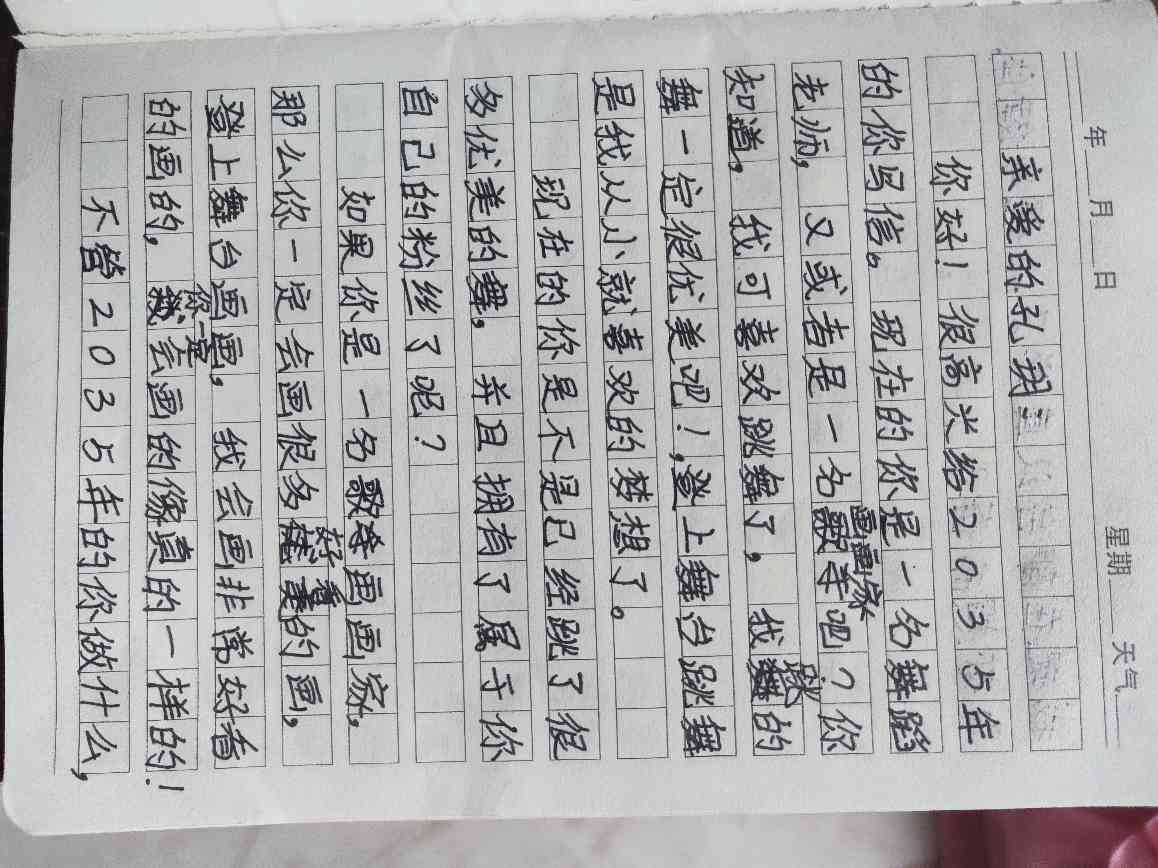 年 月 日 星期 天气
亲爱的孔
你好!很高兴给2035年
的你写信。现在的你是一名舞蹈
老师,又或者是一名画画家吧?你
知道,我可喜欢跳舞了,我跳的
舞一定很优美吧!登上舞台跳舞
是我从小就喜欢的梦想了。
现在的你是不是已经跳了很
多优美的舞,并且拥有了属于你
自己的粉丝了呢?
如果你是一名画画家,
那么你一定会画很多好看的画,
登上舞台画画,我会画非常好看
的画的,你一定会画的像真的一样的!
不管2035年的你做什么,